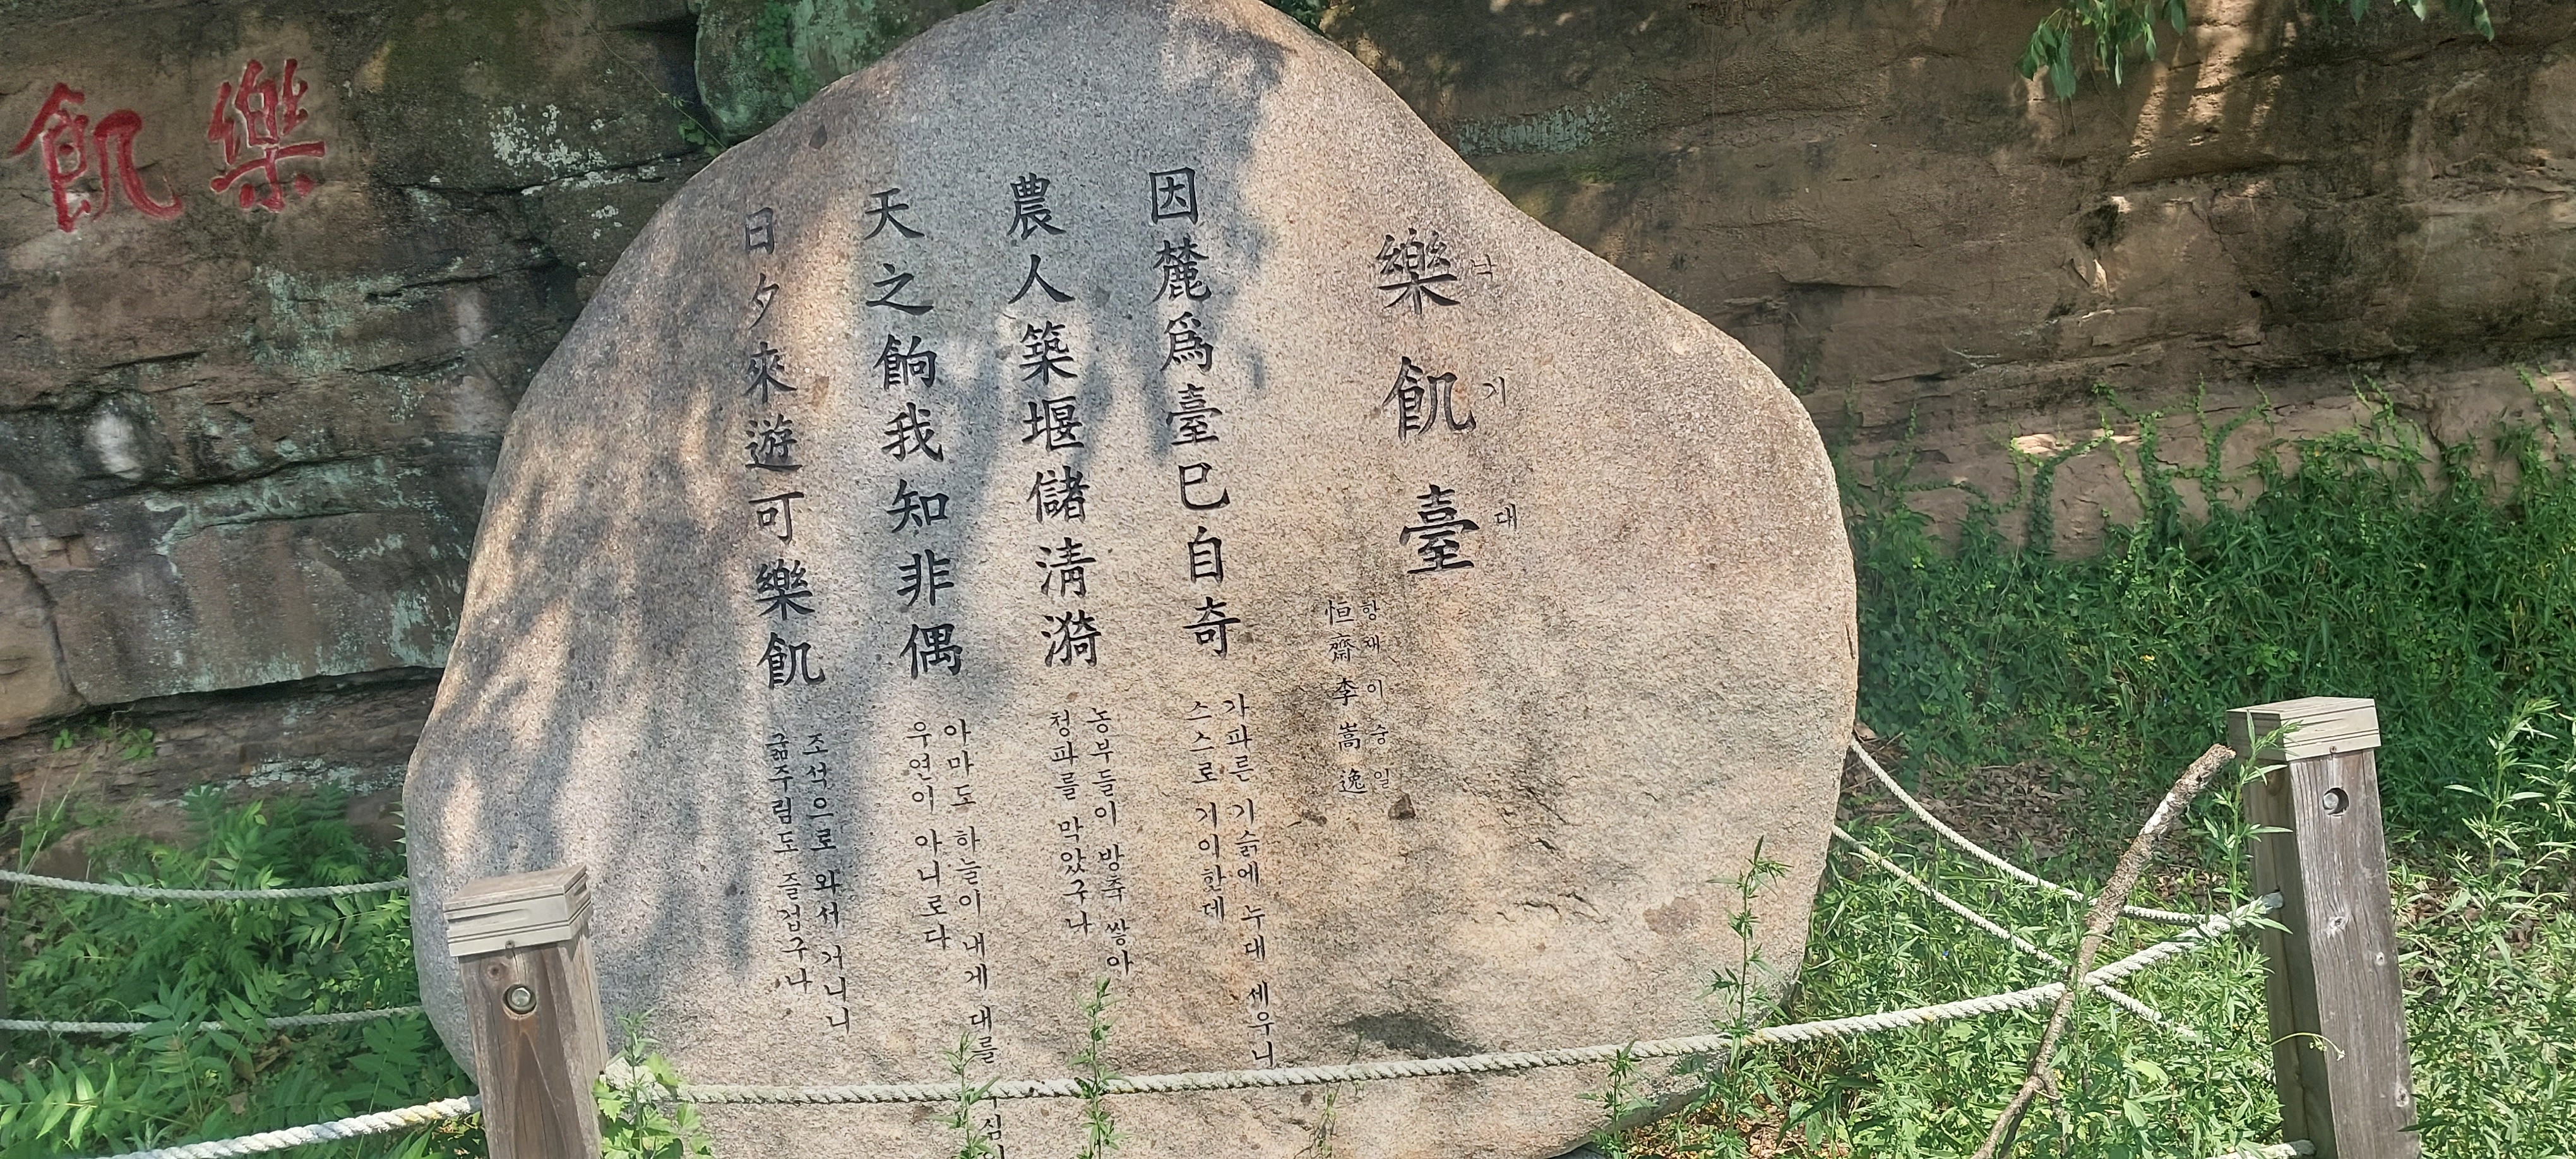 樂飢臺
낙기대
恒齋李嵩逸
항재 이숭일
因麓爲臺巳自奇
가파른 기슭에 누대 세우니
스스로 기이한데
農人築堰儲清漪
농부들이 방축 쌓아
청파를 막았구나
天之餉我知非偶
아마도 하늘이 내게 대를
우연이 아니로다
日夕來遊可樂飢
조석으로 와서 거니니
굶주림도 즐겁구나
樂飢